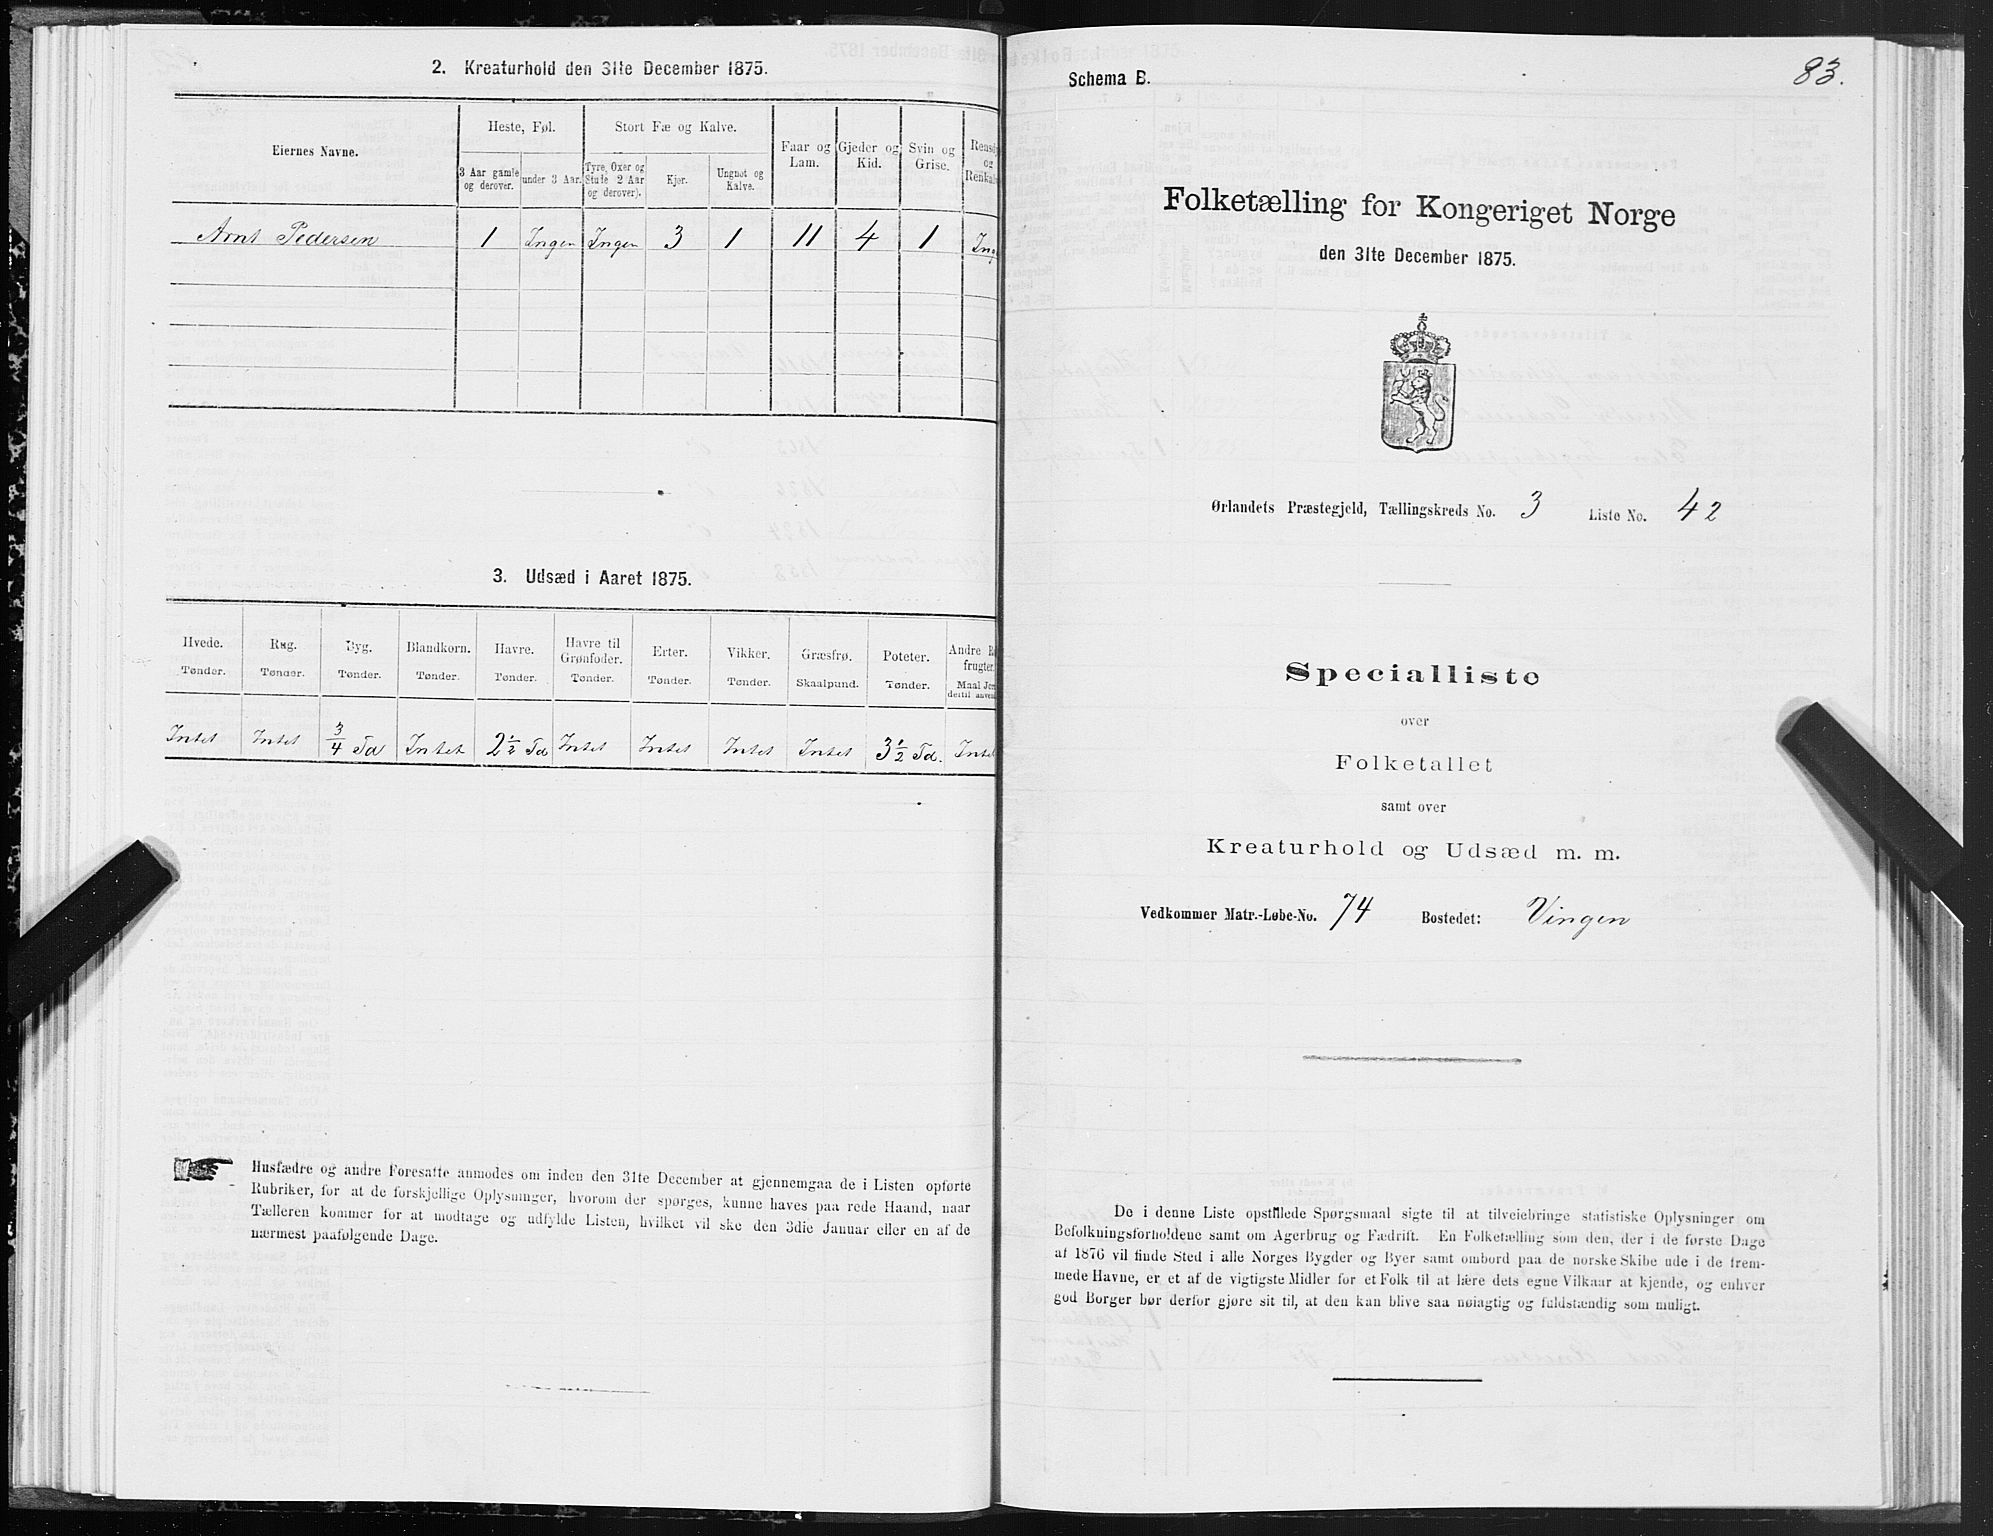 2. Kreaturhold den 31te December 1875.
Eiernes Navne.
Heste, Føl.
Stort Fæ og Kalve.
Faar og Lam.
Gjeder og Kid.
Svin og Grise.
Rensdy
og
Renkal
3 Aar gamle og derover.
under 3 Aar.
Tyre, Oxer og Stute 2 Aar og derover).
Kjør.
Ungnøt og Kalve.
Arnt Pedersen 1 Ingen Ingen 3 1 11 4 1 Ing
3. Udsæd i Aaret 1875.
Hvede. Rug. Byg. Blandkorn. Havre. Havre til Grønfoder. Erter. Vikker. Græsfrø. Poteter. Andre R frugter.
Tønder. Tønder. Tønder. Tønder. Tønder. Tønder. Tønder. Tønder. Skaalpund. Tønder. Maal Jor dertil anven
Intet Intet 3/4 Td Intet 2 1/2 Td Intet Intet Intet Intet 3 1/2 Td. Intet
Husfædre og andre Foresatte anmodes om inden den 31te December at gjennemgaa de i Listen opførte
Rubriker, for at de forskjellige Oplysninger, hvorom der spørges, kunne haves paa rede Haand, naar
Tælleren kommer for at modtage og udfylde Listen, hvilket vil ske den 3die Januar eller en af de
nærmest paafølgende Dage.
83.
Schema B.
Folketælling for Kongeriget Norge
den 31te December 1875.
Ørlandets Præstegjeld, Tællingskreds No. 3 Liste No. 42
Specialliste
over
Folketallet
samt over
Kreaturhold og Udsæd m. m.
Vedkommer Matr.-Løbe-No. 74 Bostedet: Vingen
De i denne Liste opstillede Spørgsmaal sigte til at tilveiebringe statistiske Oplysninger om
Befolkningsforholdene samt om Agerbrug og Fædrift. En Folketælling som den, der i de første Dage
af 1876 vil finde Sted i alle Norges Bygder og Byer samt ombord paa de norske Skibe ude i de frem-
mede Havne, er et af de vigtigste Midler for et Folk til at lære dets egne Vilkaar at kjende, og enhver
god Borger bør derfor gjøre sit til, at den kan blive saa nøiagtig og fuldstændig som muligt.